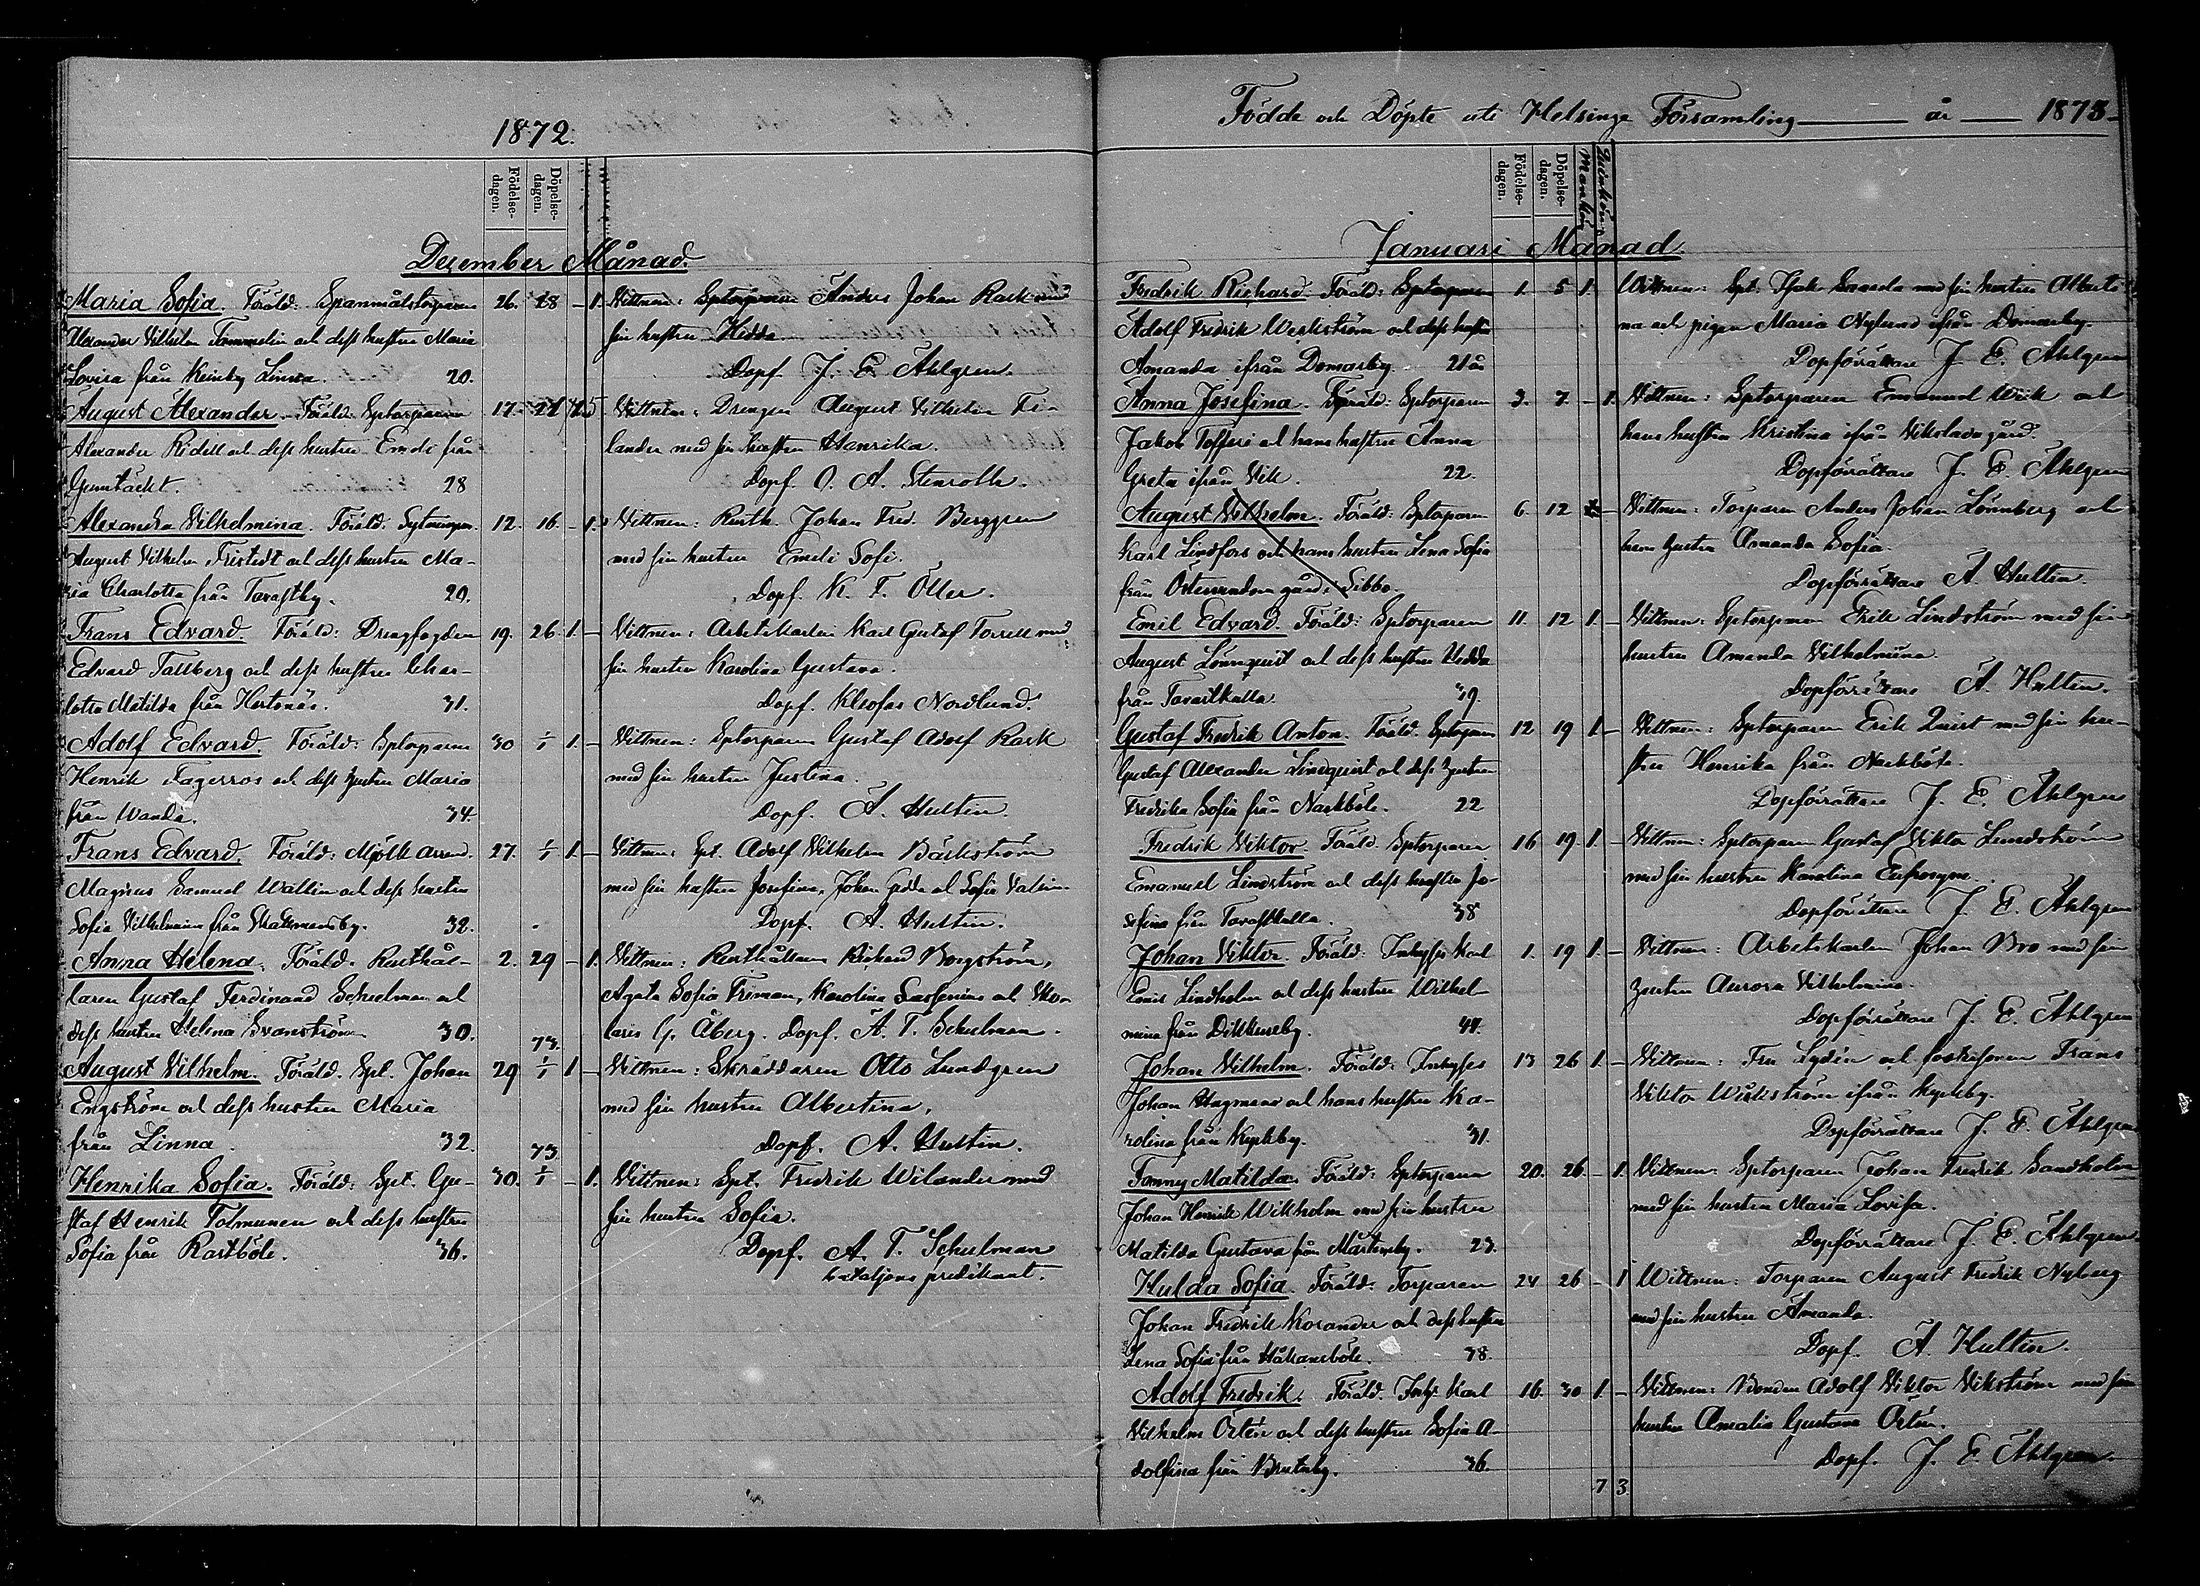 1872.
Födelse-dagen.
Döpelse-dagen.
December Månad.
Maria Sofia. Föräld: Spanmålstorparen 26. 28 – 1.
Alexander Vilhelm Tammelin och dess hustru Maria
Lovisa från Keinby Linna. 20.
Vittnen: Sptorparen Anders Johan Rask med
sin hustru Hedda
Dopf. J. E. Ahlgren.
August Alexander. Föräld: Sptorparen 17.
Alexander Ridell och dess hustru Emeli från
28
Vittnen: Drengen August Vilhelm Fi-
lander med sin hustru Henrika.
Dopf. O. A. Stenroth.
Alexandra Vilhelmina. Föräld: 12. 16. – 1.
August Vilhelm Fristedt och dess hustru Ma-
ria Charlotta från Tavastby. 20.
Vittnen: Rusth. Johan Fred. Berggren
med sin hustru Emeli Sofi.
Dopf. K. F. Öller.
Frans Edvard. Föräld: Drengfogden 19. 26. 1. –
Edvard Tallberg och dess hustru Char-
lotta Matilda från Hertonäs. 31.
Vittnen: Arbetskarlen Karl Gustaf Torrell med
sin hustru Karolina Gustava.
Dopf. Kleofas Nordlund.
Adolf Edvard. Föräld: Sptorparen 30 1/1 1. –
Henrik Fagerros och dess hustru Maria
från Wanda. 34
Vittnen: Sptorparen Gustaf Adolf Rask
med sin hustru Justina.
Dopf. A. Hultin.
Frans Edvard. Föräld: Mjölk Arren. 27. 1/1 1. –
Magnus Samuel Wallin och dess hustru
Sofia Vilhelmina från 32.
Vittnen: Spt. Adolf Vilhelm Bäckström
med sin hustru Josefina, Johan och Sofia
Dopf. A. Hultin.
Anna Helena. Föräld. Rusthål- 2. 29 – 1.
laren Gustaf Ferdinand Schulman och
dess hustru Helena Svanström 30.
Vittnen: Rusthållaren Richard Borgström,
Agata Sofia Freman, Karolina och
G. Åberg. Dopf. A. T. Schulman.
73.
August Vilhelm. Föräld. Spt. Johan 29 1/1 1
Engström och dess hustru Maria
från Linna. 32.
Vittnen: Skräddaren Otto Lundgren
med sin hustru Albertina.
Dopf. A. Hultin.
73
Henrika Sofia. Föräld: Spt. Gu- 30. 1/1 – 1.
staf Henrik Tolmunen och dess hustru
Sofia från Rastböle. 36.
Vittnen: Spt. Fredrik Wilander med
sin hustru Sofia.
Dopf. A. T. Schulman
bataljons predikant.
Födde och Döpte uti Helsinge Församling år 1873
Födelse-dagen.
Döpelse-dagen.
Mankön
Qvinkön
Januari Månad
Fredrik Richard. Föräld: Sptorparen 1. 5 1.
Adolf Fredrik Westström och dess hustru
Amanda ifrån Domarby. 21 år
Vittnen: Spt. med sin hustru Alberti-
na och pigan Maria Nylund ifrån Domarby.
Dopförrättare J. E. Ahlgren
Anna Josefina. Föräld: Sptorparen 3. 7. – 1.
Jakob Tofferi och hans hustru Anna
Greta ifrån Vik. 22.
Vittnen: Sptorparen Emanuel Wik och
hans hustru Kristina ifrån gård.
Dopförrättare J. E. Ahlgren
August Vilhelm. Föräld: Sptorparen 6. 12
Karl Lindfors och hans hustru Lena Sofia
från Östersundom gård i Sibbo.
Vittnen: Torparen Anders Johan Lönnberg och
hans hustru Amanda Sofia.
Dopförrättare A. Hultin.
Emil Edvard. Föräld: Sptorparen 11. 12 1. –
August Lönnquist och dess hustru Hedda
från Tavastkulla. 39.
Vittnen: Sptorparen Erik Lindström med sin
hustru Amanda Vilhelmina.
Dopförrättare A. Hultin.
Gustaf Fredrik Anton. Föräld. Sptorparen 12 19 1. –
Gustaf Alexander Lindquist och dess hustru
Fredrika Sofia från Nackböle. 22
Vittnen: Sptorparen Erik Quist med sin hu-
stru Henrika från Nackböle.
Dopförrättare J. E. Ahlgren
Fredrik Viktor. Föräld. Sptorparen 16 19 1. –
Emanuel Lindström och dess hustru Jo-
sefina från Tavastkulla. 38
Vittnen: Sptorparen Gustaf Viktor Lundström
med sin hustru Karolina Eufrosyne.
Dopförrättare J. E. Ahlgren
Johan Viktor. Föräld: Inhyses Karl 1. 19 1. –
Emil Lindholm och dess hustru Wilhel-
mina från Dickursby. 44.
Vittnen: Arbetskarlen Johan Bro med sin
hustru Aurora Vilhelmina.
Dopförrättare J. E. Ahlgren
Johan Vilhelm. Föräld: Inhyses 13 26 1. –
Johan Hagman och hans hustru Ka-
rolina från Kyrkby. 31.
Vittnen: Fru Lydén och fosterson Frans
Viktor Wickström ifrån Kyrkby.
Dopförrättare J. E. Ahlgren
Fanny Matilda. Föräld: Sptorparen 20. 26. – 1.
Johan Henrik Wikholm med sin hustru
Matilda Gustava från Mårtensby. 23.
Vittnen: Sptorparen Johan Fredrik Sandholm
med sin hustru Maria Lovisa.
Dopförrättare J. E. Ahlgren
Hulda Sofia. Föräld: Torparen 24 26 – 1
Johan Fredrik Kosander och dess hustru
Lena Sofia från Håkansböle. 38.
Wittnen: Torparen August Fredrik Nyberg
med sin hustru Amanda.
Dopf. A. Hultin.
Adolf Fredrik. Föräld. Inhy. Karl 16. 30 1. –
Vilhelm Östén och dess hustru Sofia A-
dolfina från 36.
Vittnen: Bonden Adolf Viktor Vikström med sin
hustru Amalia Gustava Östén.
Dopf. J. E. Ahlgren.
7 3